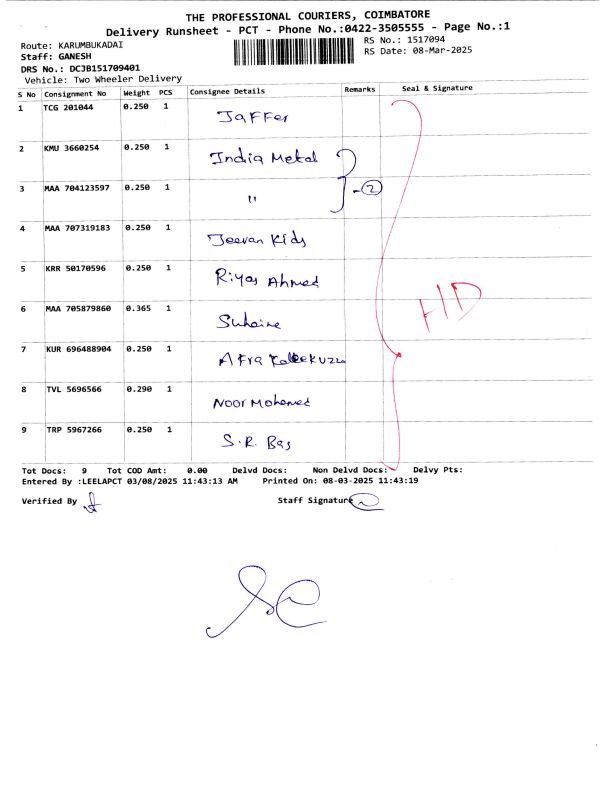 THE PROFESSIONAL COURIERS, COIMBATORE
Delivery Runsheet - PCT - Phone No.:0422-3505555 - Page No.:1
Route: KARUMBUKADAI
RS No.: 1517094
Staff: GANESH
RS Date: 08-Mar-2025
DRS No.: DCJB151709401
Vehicle: Two Wheeler Delivery
S No Consignment No Weight PCS Consignee Details Remarks Seal & Signature
1 TCG 201044 0.250 1 Jaffer
2 KMU 3660254 0.250 1 India Metal
3 MAA 704123597 0.250 1 " - 2
4 MAA 707319183 0.250 1 Jeevan Kids
5 KRR 50170596 0.250 1 Riyas Ahmed
HD
6 MAA 705879860 0.365 1 Suhaine
7 KUR 696488904 0.250 1 Afra
8 TVL 5696566 0.290 1 Noor Mohamed
9 TRP 5967266 0.250 1 S.R. Bas
Tot Docs: 9 Tot COD Amt: 0.00 Delvd Docs: Non Delvd Docs: Delvy Pts:
Entered By :LEELAPCT 03/08/2025 11:43:13 AM Printed On: 08-03-2025 11:43:19
Verified By Staff Signature